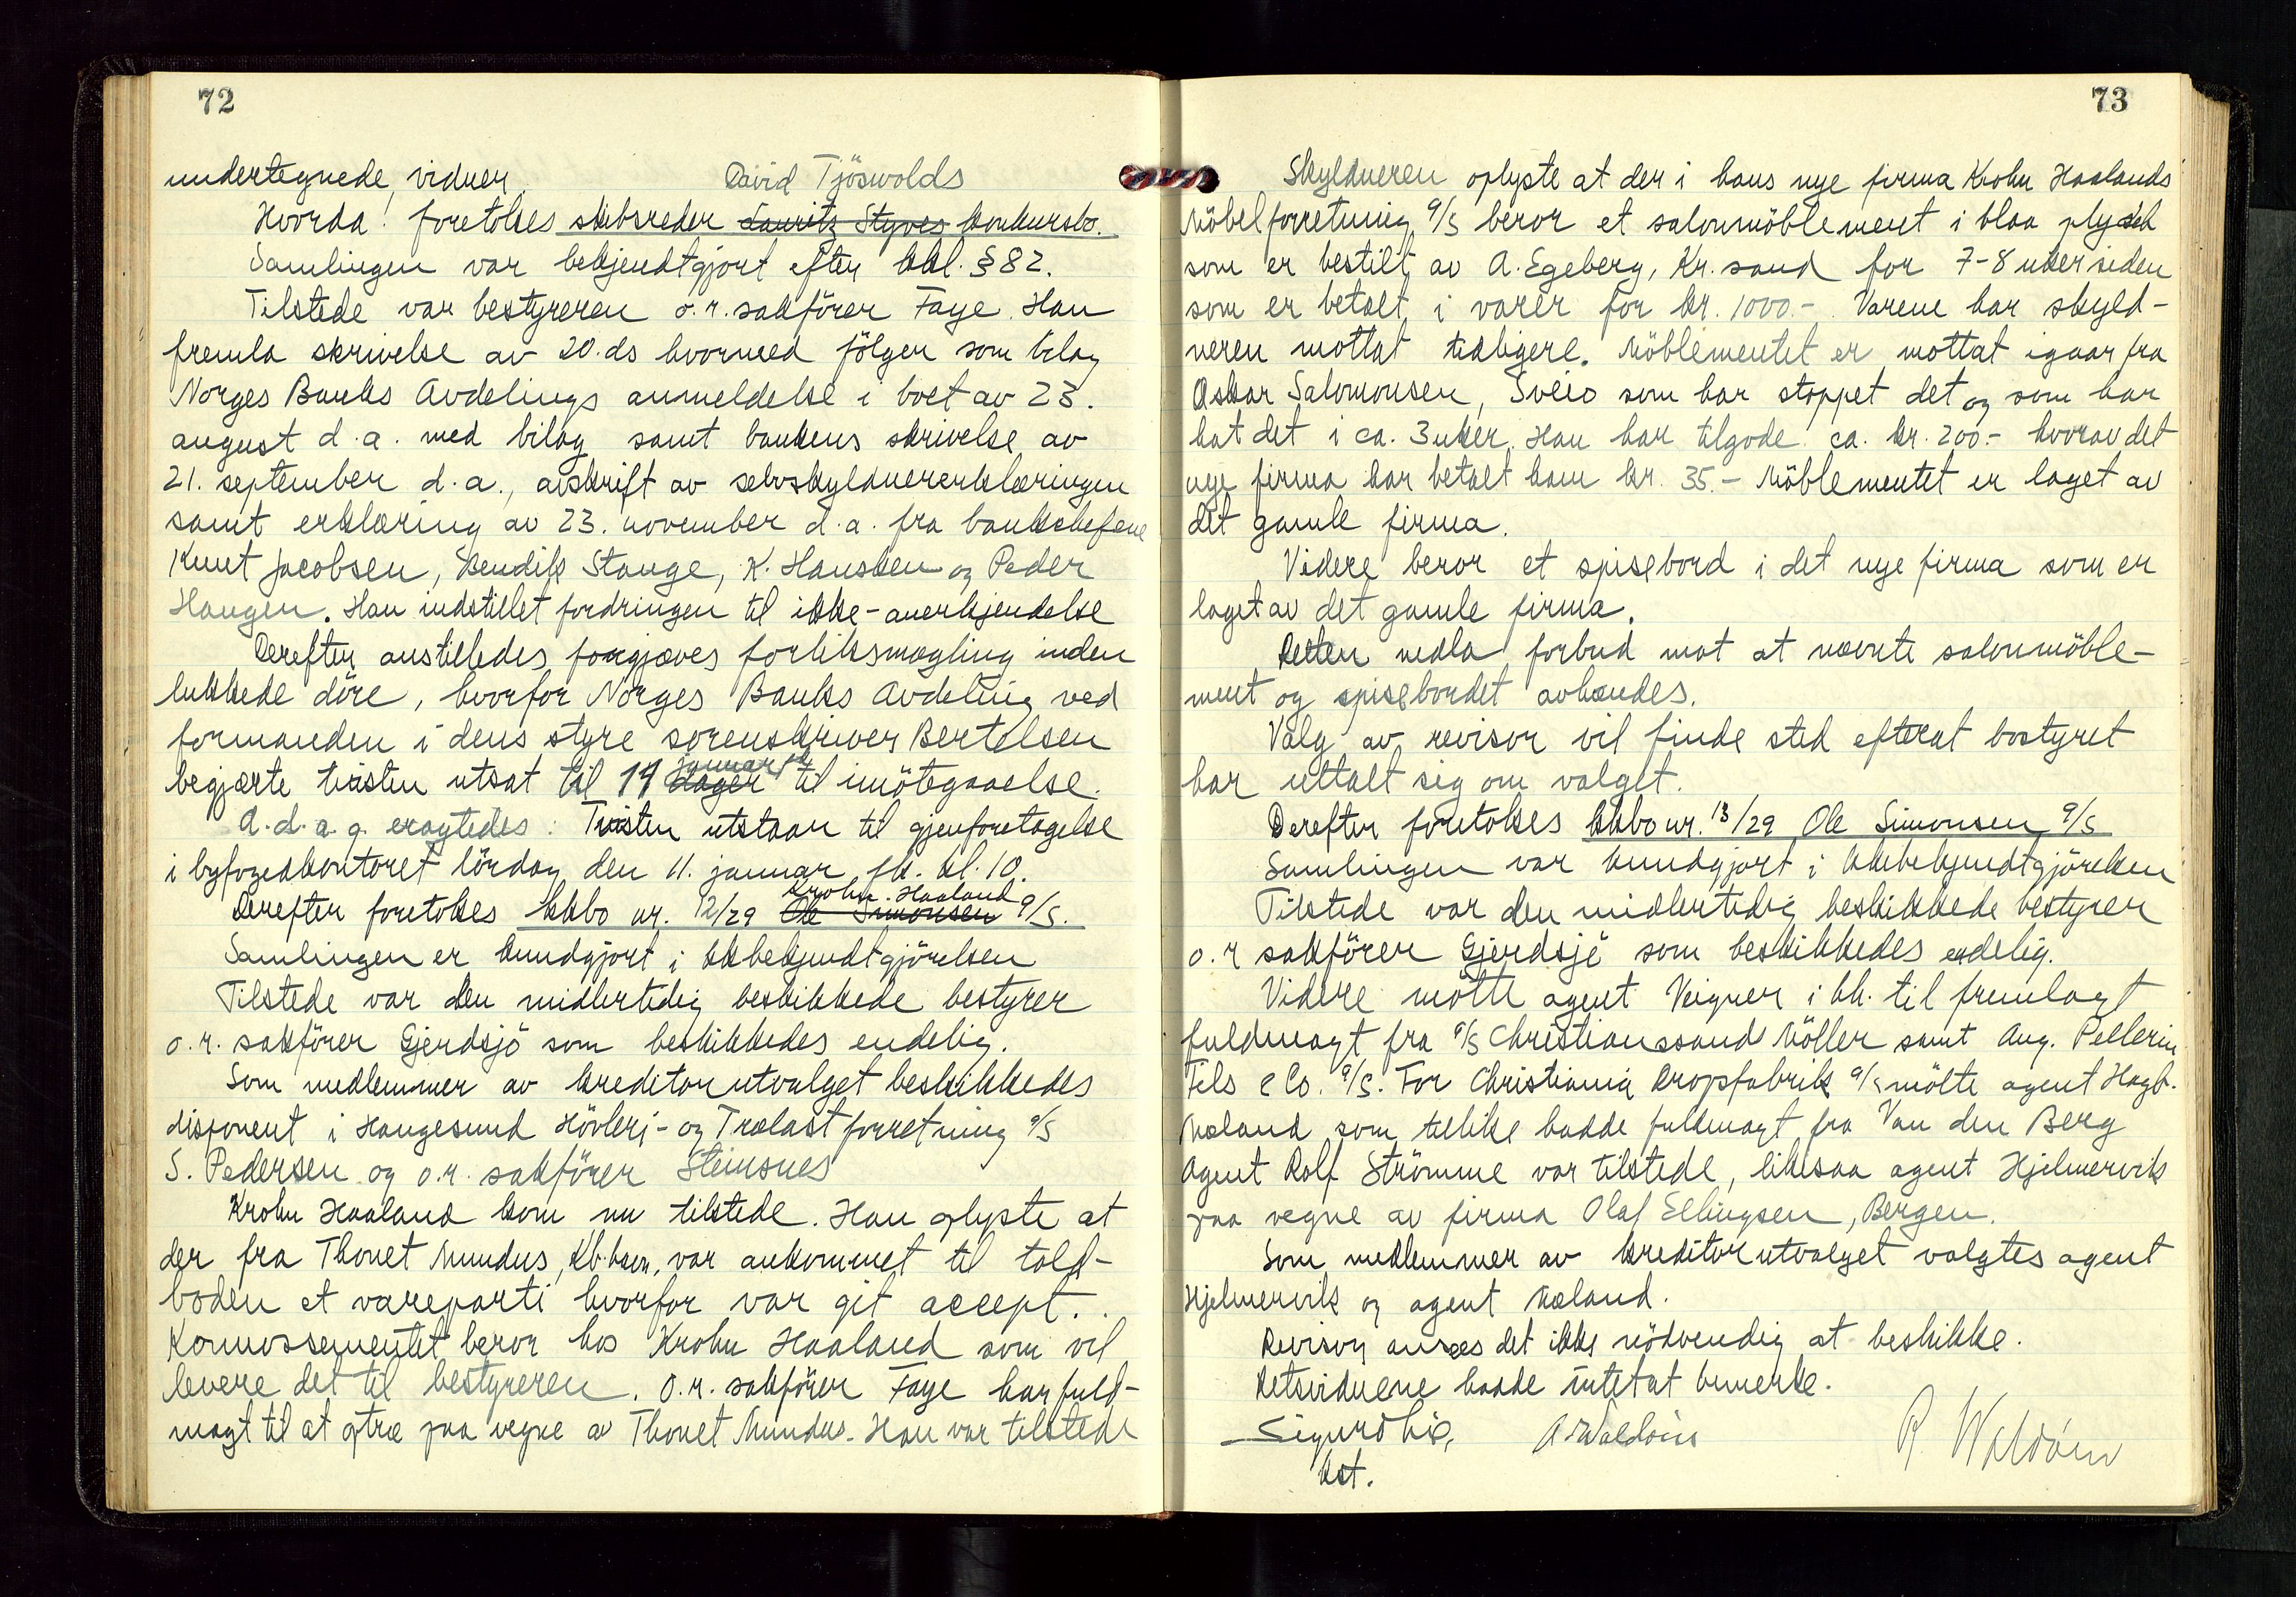 72
undertegnede vidner.
David Tjöswolds
Hvorda: foretokes skibsreder Lauritz Styves konkursbo.
Samlingen var bekjendtgjort efter kkl. § 82.
Tilstede var bestyreren o.r. sakförer Faye. Han
fremla skrivelse av 20. ds hvormed fölger som bilag
Norges Banks Avdelings anmeldelse i boet av 23.
august d.a. med bilag samt bankens skrivelse av
21. september d.a., avskrift av selvskyldnererklæringen
samt erklæring av 23. november d.a. fra bankchefene
Knut Jacobsen, Bendik Stange, K. Hansken og Peder
Haugen. Han indstillet fordringen til ikke-anerkjendelse
Derefter anstilledes forgjæves forliksmægling inden
lukkede döre, hvorfor Norges Banks Avdeling ved
formanden i dens styre sorenskriver Bertelsen
januar fk
begjærte tvisten utsat til 11 dager til imötegaaelse.
A.d.a.g. eragtedes: Tvisten utstaar til gjenforetagelse
i byfogedkontoret lördag den 11. januar fk. kl. 10.
Krohn Haaland
Derefter foretokes kkbo nr. 12/29 Ole Simonsen A/S.
Samlingen er kundgjort i kkbekjendtgjörelsen
Tilstede var den midlertidig beskikkede bestyrer
o.r. sakförer Gjerdsjö som beskikkedes endelig.
Som medlemmer av kreditorutvalget beskikkedes
disponent i Haugesund Hövleri- og Trælastforretning A/S
S. Pedersen og o.r. sakförer Steinsnes
Krohn Haaland kom nu tilstede. Han oplyste at
der fra Thonet Mundus, Kb.havn, var ankommet til told-
boden et vareparti hvorfor var git accept.
Konnossementet beror hos Krohn Haaland som vil
levere det til bestyreren. O.r. sakförer Faye har fuld-
magt til at optræ paa vegne av Thonet Mundus. Han var tilstede
73
Skyldneren oplyste at der i hans nye firma Krohn Haalands
Möbelforretning A/S beror et salonmöblement i blaa plysch
som er bestilt av A. Egeberg, Kr.sand for 7-8 uker siden
som er betalt i varer for kr. 1000.- Varene har skyld-
neren mottat tidligere. Möblementet er mottat igaar fra
Oskar Salomonsen, Sveio som har stoppet det og som har
hat det i ca. 3 uker. Han har tilgode ca. kr. 200.- hvorav det
nye firma har betalt ham kr. 35.- Möblementet er laget av
det gamle firma.
Videre beror et spisebord i det nye firma som er
laget av det gamle firma.
Retten nedla forbud mot at nævnte salonmöble-
ment og spisebordet avhændes.
Valg av revisor vil finde sted efterat bostyret
har uttalt sig om valget.
Derefter foretokes kkbo nr. 13/29 Ole Simonsen A/S
Samlingen var kundgjort i kkbekjendtgjörelsen
Tilstede var den midlertidig beskikkede bestyrer
o.r sakförer Gjerdsjö som beskikkedes endelig.
Videre mötte agent Veigner i kh. til fremlagt
fuldmagt fra A/S Christianssands Möller samt Aug. Pellerin
Fils & Co. A/S. For Christiania Dropsfabrik A/S mötte agent Hagb.
Mæland som tillike hadde fuldmagt fra Van den Berg
Agent Rolf Strömme var tilstede, likesaa agent Hjelmervik
paa vegne av firma Olaf Ellingsen, Bergen.
Som medlemmer av kreditorutvalget valgtes agent
Hjelmervik og agent Mæland.
Revisor ansees det ikke nödvendig at beskikke.
Retsvidnene hadde intet at bemerke.
Sigurd Lie,
A Waldöin
R. Waldöin
kst.